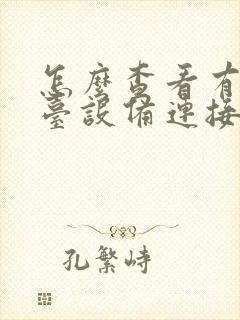 怎麼查看有
臺設備連接
孔繁峙